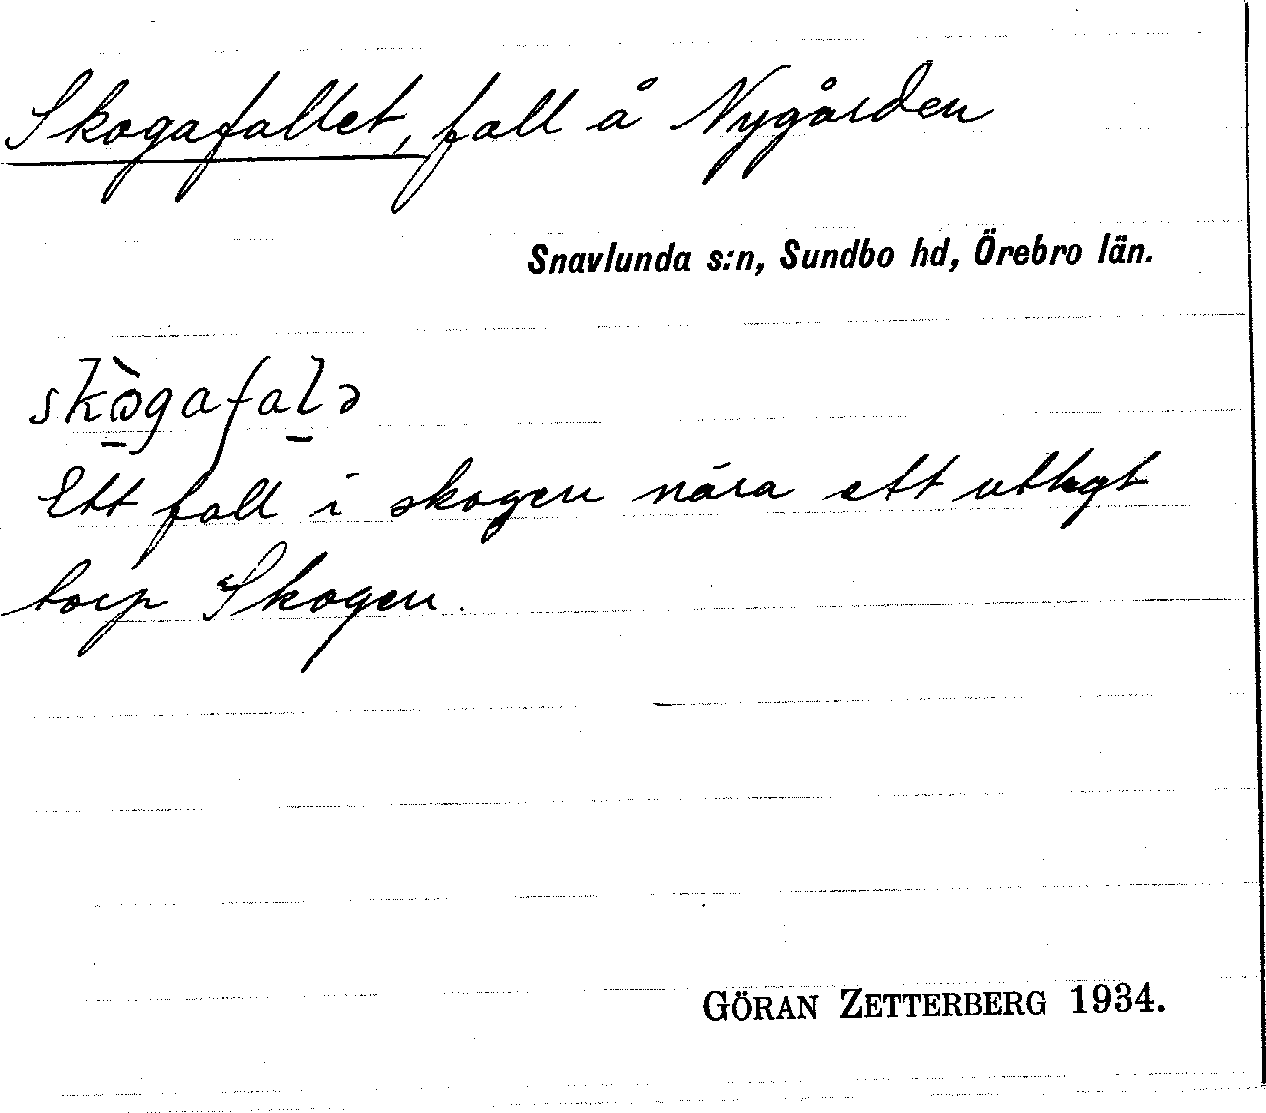 Skogafallet, fall å Nygården
Snavlunda s:n, Sundbo hd, Örebro län.
skò̠gafal̠ə
Ett fall i skogen nära ett utlagt
torp Skogen.
GÖRAN ZETTERBERG 1934.